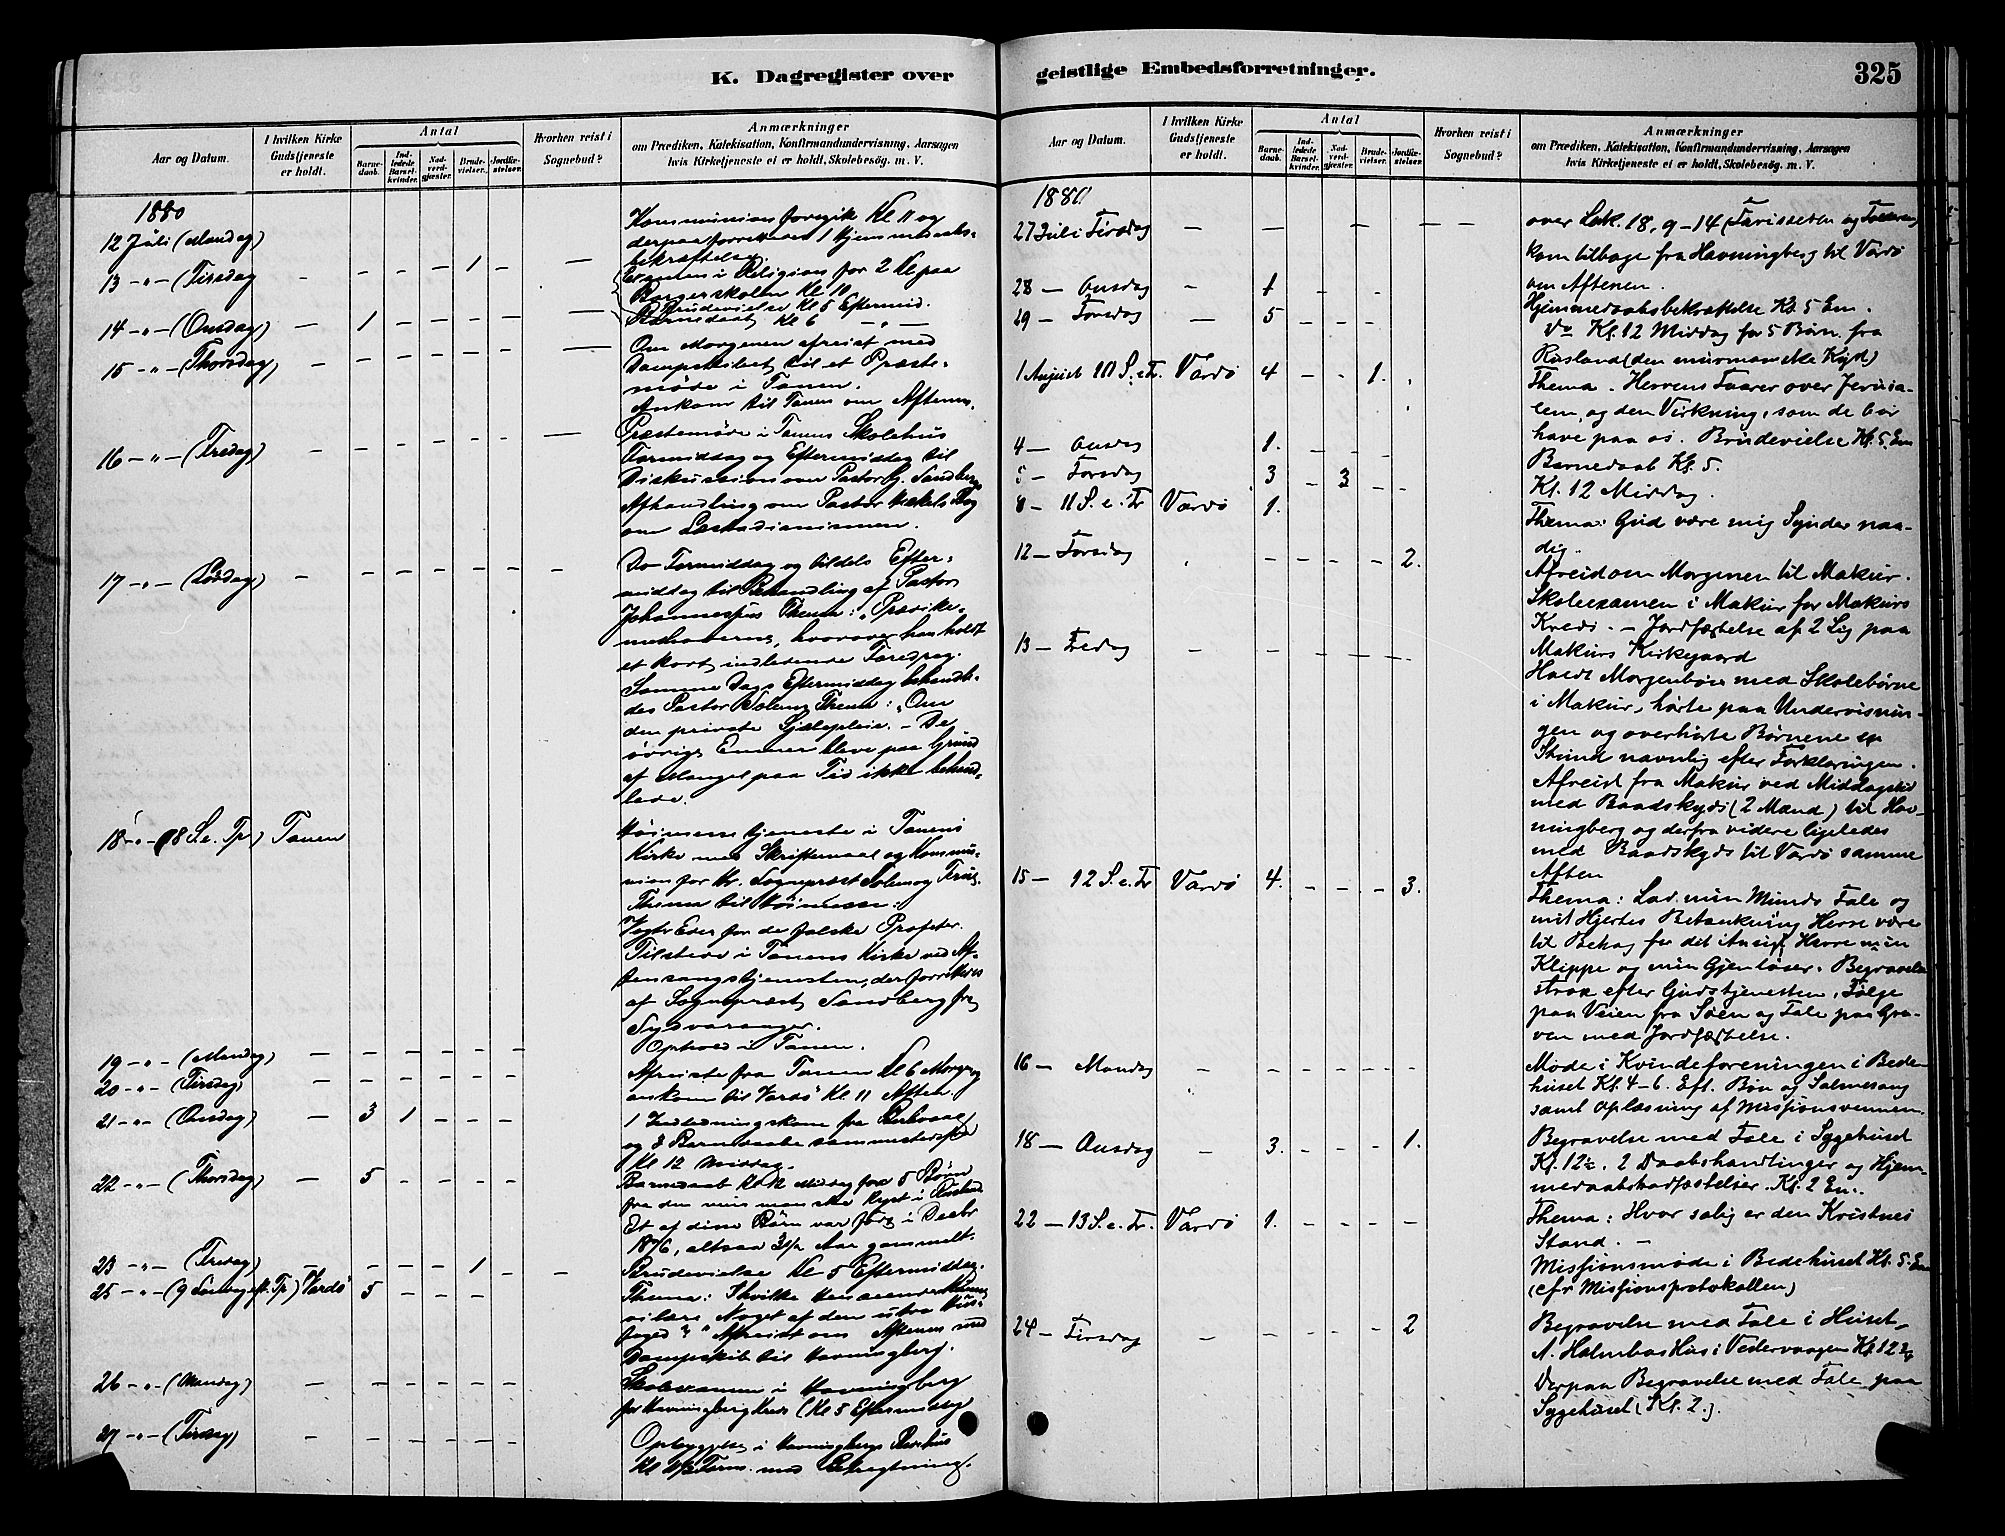 K. Dagregister over
Aar og Datum.
I hvilken Kirke Gudstjeneste er holdt.
Antal
Barnedaab.
Indledede Barselkvinder.
Nadverdgjæster.
Brudevielser.
Jordfæstelser.
Hvorhen reist i Sognebud?
Anmærkninger
om Prædiken, Katekisation, Konfirmandundervisning, Aarsagen
hvis Kirketjeneste ei er holdt, Skolebesög. m. V.
1880
12 Juli (Mandag)
Kommunion foregik Kl 11 og
derpaa forrettedes 1 Hjemmedaabs-
bekræftelse.
13 -"- (Tirsdag — — — — 1 — —
Examen i Religion for 2 Kl paa
Borgerskolen Kl 10.
Brudevielse Kl 5 Eftermid.
14 -"- (Onsdag) — 1 — — — — —
Barnedaab Kl 6 -"-
15 -"- (Thorsdag) — — — — — — —
Om Morgenen afreist med
Dampskibet til et Præste-
møde i Tanen.
Ankom til Tanen om Aftenen.
16 -"- (Fredag) — — — — — — —
Præstemøde i Tanens Skolehus
Formiddag og Eftermiddag til
Diskussion over Pastor Sandbergs
Afhandling om Pastor Bog
om Læstadianismen.
17 -"- (Lørdag) — — — — — — —
Do Formiddag og tildels Efter-
middag til Behandling af Pastor
Thema: "Prædike-
methoderne, hvorover han holdt
et kort indledende Foredrag.
Samme Dags Eftermiddag behandle-
des Pastor Solems Thema: "Om
den private Sjælepleie. — De
øvrige Emner bleve paa Grund
af Mangel paa Tid ikke behand-
lede.
18 -"- (8 S.e. Tr) Tanen
Høimessetjeneste i Tanens
Kirke med Skriftemaal og Kommu-
nion for Hr. Sognepræst Solem og Frue.
Thema til Høimessen:
Vogter Eder for de falske Profeter.
Tilstede i Tanens Kirke ved Af-
tensangstjenesten, der forrettedes
af Sognepræst Sandberg fra
Sydvaranger.
19 -"- (Mandag) — — — — — —
Ophold i Tanen.
20 -"- (Tirsdag) — — — — — —
Afreiste fra Tanen Kl 6 Morgen og
ankom til Vardö Kl 11 Aften.
21 -"- (Onsdag) — 3 1 — — —
1 Indledningskone fra
og 3 Barnedaabe sammesteds fra
Kl 12 Middag.
22 -"- (Thorsdag) — 5 — — — —
Barnedaab Kl 12 Middag for 5 Börn
fra den murmanske Kyst i Rusland.
Et af disse Börn var født i Decbr
1876, altsaa 3½ Aar gammelt.
23 -"- (Fredag) — — — — 1 — —
Brudevielse Kl 5 Eftermiddag.
25 -"- (9 Søndag eft. Tr) Vardö 5 — — —
Thema: I hvilke Henseender kunne
vi lære Noget af den utro Hus-
foged? " Afreist om Aftenen med
Dampskib til Havningberg.
26 -"- (Mandag) — — — — — —
Skoleexamen i Havningberg
for Havningberg Kreds (Kl 5 Eftermiddag
27 -"- (Tirsdag) — — — — — —
Opbyggelse i Havningbergs Bedehus
Kl Form. med Betragtning
geistlige Embedsforretninger.
325
Aar og Datum.
I hvilken Kirke Gudstjeneste er holdt.
Antal
Barnedaab.
Indledede Barselkvinder.
Nadverdgjæster.
Brudevielser.
Jordfæstelser.
Hvorhen reist i Sognebud?
Anmærkninger
om Prædiken, Katekisation, Konfirmandundervisning, Aarsagen
hvis Kirketjeneste ei er holdt, Skolebesög. m. V.
1880
27 Juli Tirsdag — — — — — — —
over Luk. 18, 9-14 (Farisæeren og Tolderen)
kom tilbage fra Havningberg til Vardö
om Aftenen.
28 — Onsdag — 1 — —
Hjemmedaabsbekræftelse Kl. 5 Em.
29 — Torsdag — 5 — — —
Do Kl. 12 Middag for 5 Börn fra
Rusland (den murmanske Kyst)
1 August 10 S. e. Tr. Vardö 4 — — 1.
Thema. Herrens Taarer over Jerusa-
lem, og den Virkning, som de bör
have paa os. Brudevielse Kl. 5. Em
4 — Onsdag 1. — — —
Barnedaab Kl. 5.
5 — Torsdag 3 — 3 — —
Kl. 12 Middag.
8 — 11 S. e. Tr Vardö 1.
Thema: Gud være mig Synder naa-
dig.
12 — Torsdag — — — — 2.
Afreid om Morgenen til Makur.
Skoleexamen i Makur for Makurs
Kreds. — Jordfæstelse af 2 Lig paa
Makurs Kirkegaard
13 — Fredag — — — — — —
Holdt Morgenbön med Skolebörne
i Makur, hörte paa Undervisnin-
gen og overhörte Börnene en
Stund navnlig efter Forklaringen.
Afreid fra Makur ved Middagstid
med Baadskyds (2 Mand) til Hav-
ningberg og derfra videre ligeledes
med Baadskyds til Vardö samme
Aften
15 — 12 S. e. Tr Vardö 4. — — — 3.
Thema: Lad min Munds Tale og
mit Hjertes Betænkning Herre være
til Behag for dit Ansigt, Herre min
Klippe og min Gjenlöser. Begravelse
strax efter Gudstjenesten. Fölge
paa Veien fra Söen og Tale paa Gra-
ven med Jordfæstelse.
16 — Mandag — — — — — —
Möde i Kvindeforeningen i Bede-
huset Kl. 4-6. Eft. Bön og Salmesang
samt Oplæsning af Missionsvennen.
18 — Onsdag — 3. — — — 1.
Begravelse med Tale i Sygehuset
Kl. 12½. 2 Daabshandlinger og Hjem-
medaabsstadfæstelser. Kl. 2 Em.
22 — 13 S. e. Tr. Vardö 1. — — — —
Thema: Hvor salig er den Kristnes
Stand. —
Missionsmöde i Bedehuset Kl. 5. Em
(cfr Missionsprotokollen)
24 — Tirsdag — — — — — 2
Begravelse med Tale i Huset,
A. Holmboes Hus i Vestervaagen Kl. 12½
Derpaa Begravelse med Tale paa
Sygehuset (Kl. 2.).